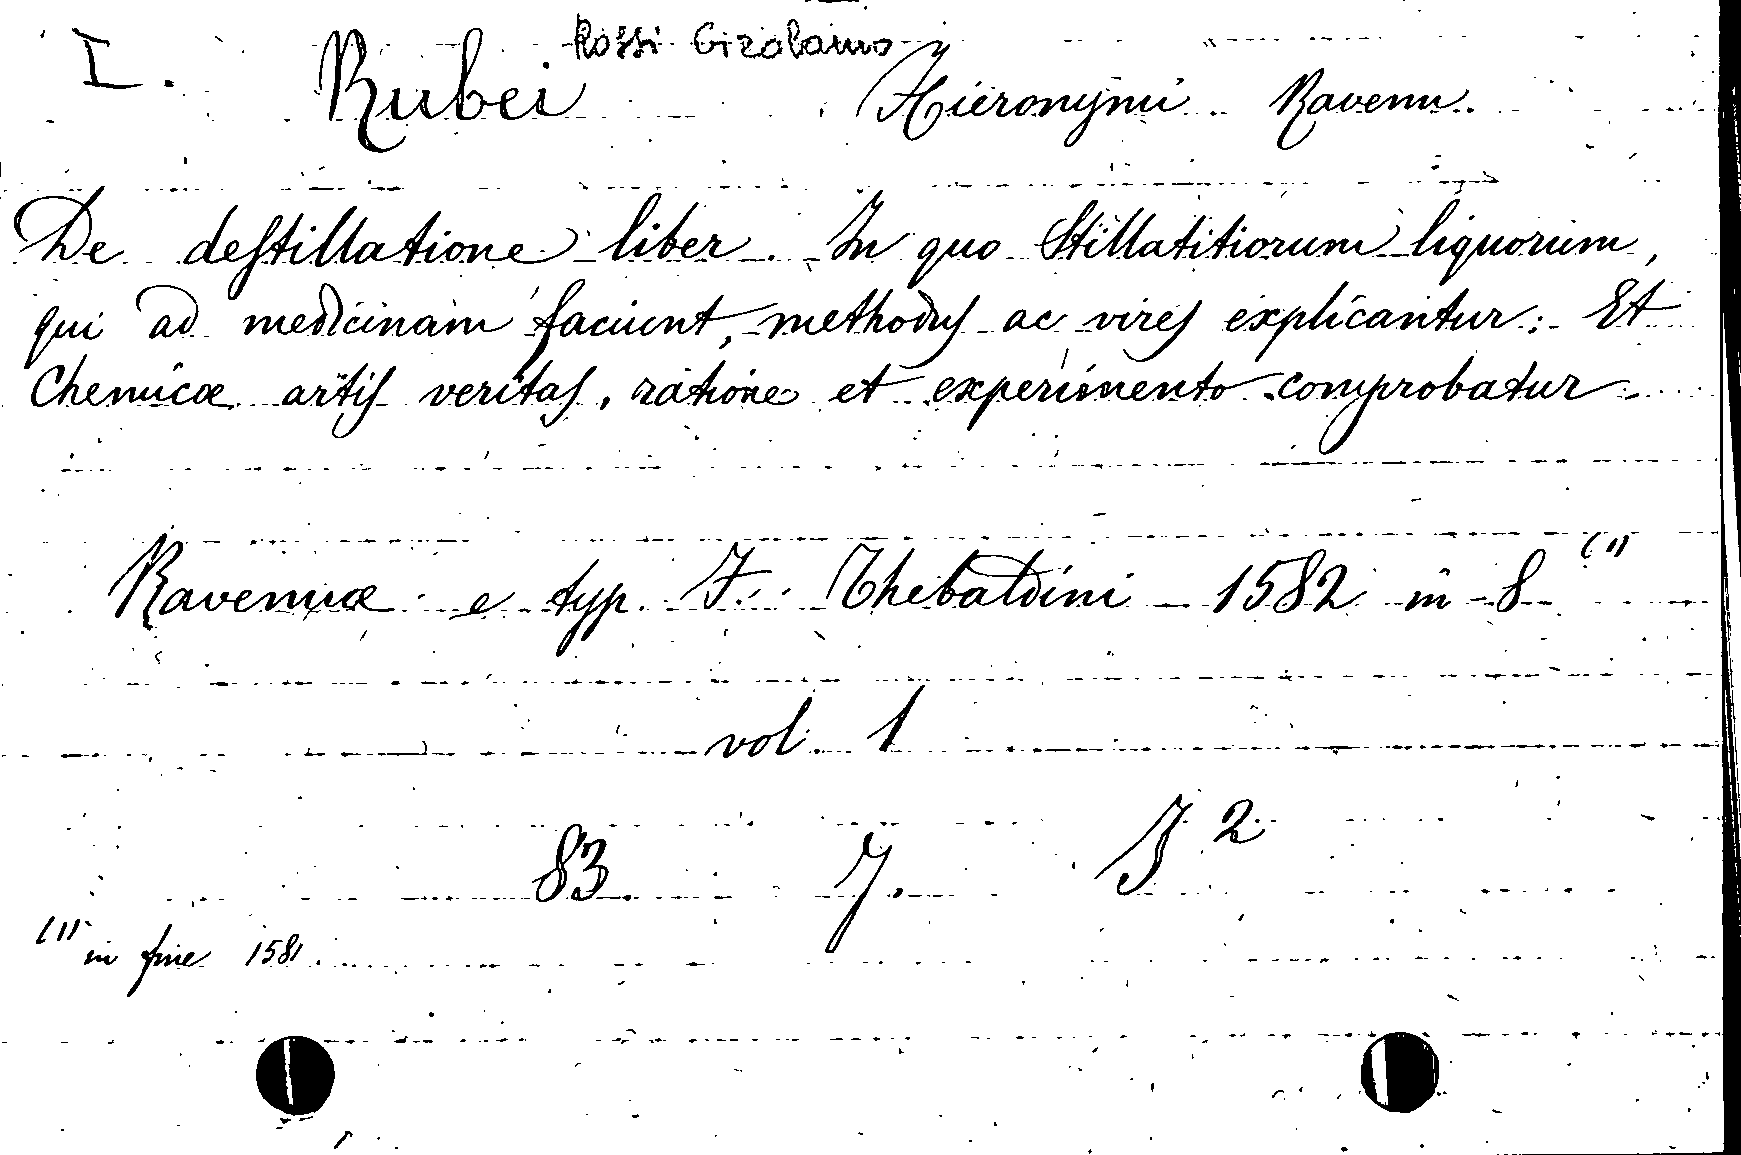 Rossi Girolamo
I. Rubei Hieronymi Ravenn.
De destillatione liber. In quo Stillatitiorum liquorum,
qui ad medicinam faciunt, methodus ac vires explicantur: Et
Chemicæ artis veritas, ratione et experimento comprobatur.
Ravennæ e typ. F. Thebaldini 1582 in 8 (1)
vol. 1
83. 7. J 2
(1) in fine 1581.